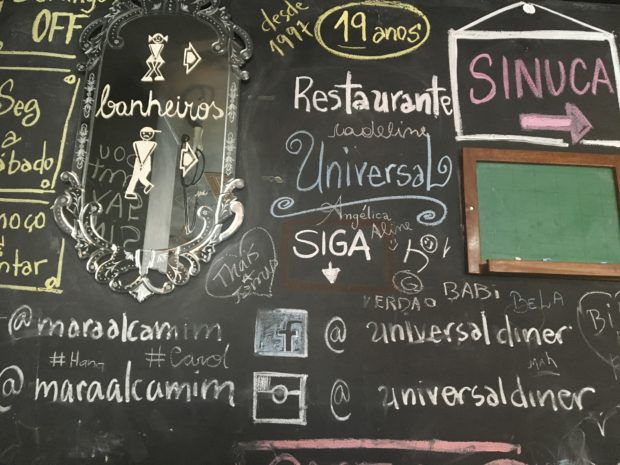 OFF
Seg
a
desde
1997
19 anos
SINUCA
banheiros
Restaurante
Universal
Angélica
Aline
SIGA
Thaís
VERDÃO BABI BELA
@maraalcamim
@universaldiner
#Hana #Carol
Mah
@maraalcamim
@universaldiner